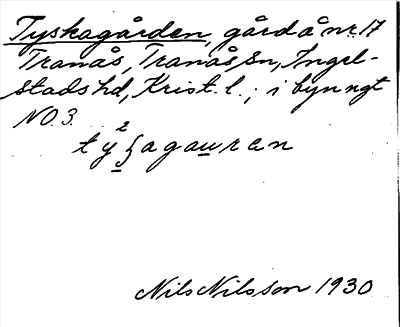 Tyskagården, gård å nr. 17
Tranås, Tranås Sn, Ingel-
stads hd, Krist. l.; i byn ngt
NO. 3.
Nils Nilsson 1930